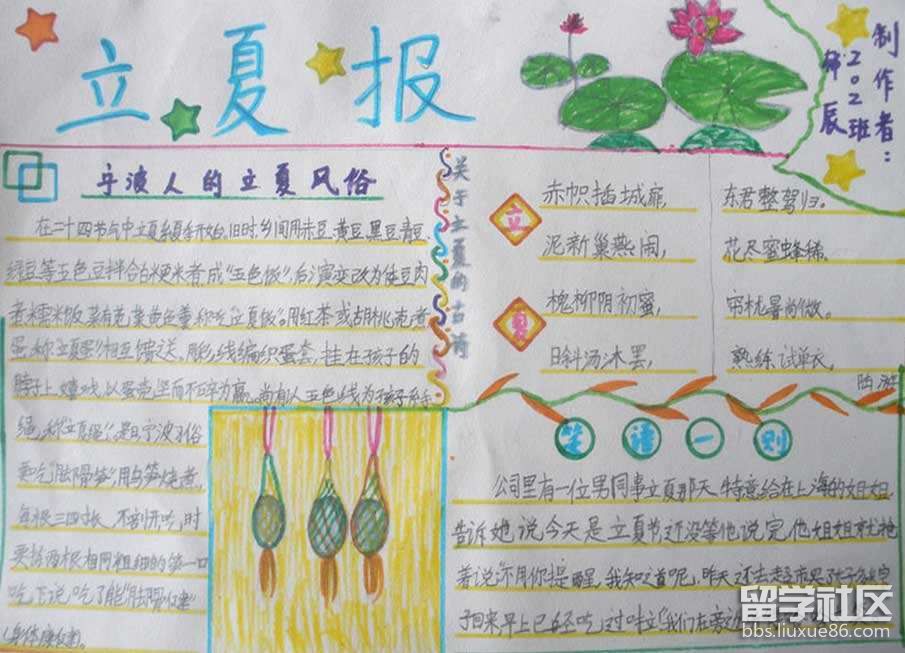 立夏报
制作者:
202班
辰
宁波人的立夏风俗
在二十四节气中立夏 旧时乡间用赤豆、黄豆、黑豆、青豆、
绿豆等五色豆拌合白粳米煮成"五色饭",后演变改为 豆肉
煮糯米饭,菜有苋菜黄鱼羹,称 立夏饭。用红茶或胡桃壳煮
蛋,称立夏蛋 相互馈送。用彩线编织蛋套,挂在孩子的
脖子上 嬉戏,以蛋壳坚而不碎为赢。尚有人五色线为孩子系手
绳,称"立夏绳"。是日宁波习俗
要吃"脚骨笋"用乌笋烧煮,
每根三四寸长,不剖开吃,时
要拣两根相同粗细的笋一口
吃下说,吃了能"脚骨健"
(身体康健)。
关于立夏的古诗
立夏
赤帜插城扉, 东君整驾归。
泥新巢燕闹, 花尽蜜蜂稀。
槐柳阴初蜜, 帘栊暑尚微。
日斜汤沐罢, 熟练试单衣。
陆游
笑话一则
公司里有一位男同事立夏那天,特意给在上海的姐姐
告诉她说今天是立夏节还没等他说完,他姐姐就抢
着说"还用你提醒,我知道呢,昨天还去超市买了
回来早上已经吃过 "我们在旁边
留学社区
bbs.liuxue86.com